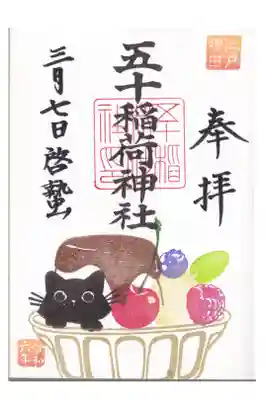 奉拝
五十稲荷神社
三月七日啓蟄